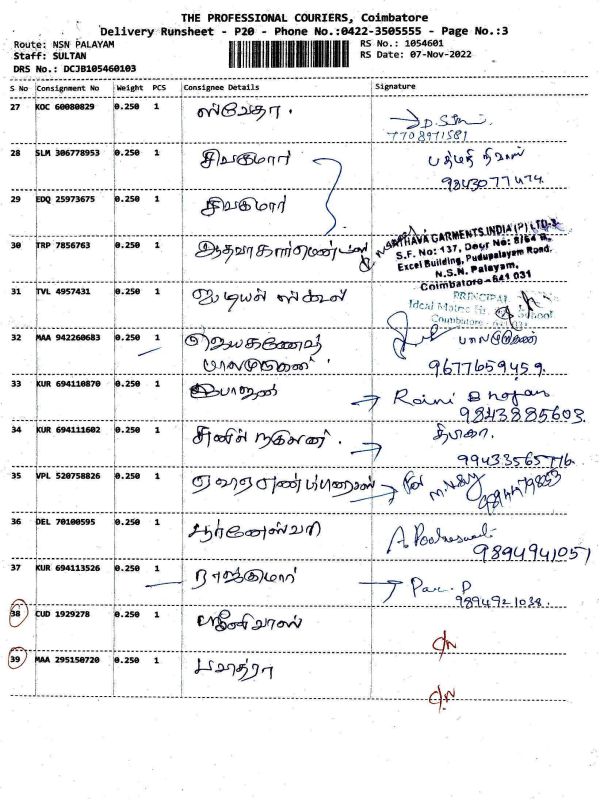 THE PROFESSIONAL COURIERS, Coimbatore
Delivery Runsheet - P20 - Phone No.:0422-3505555 - Page No.:3
Route: NSN PALAYAM
RS No.: 1054601
Staff: SULTAN
RS Date: 07-Nov-2022
DRS No.: DCJB105460103
S No Consignment No Weight PCS Consignee Details Signature
27 KOC 60080829 0.250 1 ஸ்வேதா.
7708971581
28 SLM 306778953 0.250 1 சிவகுமார்
9843077474
29 EDQ 25973675 0.250 1 சிவகுமார்
30 TRP 7856763 0.250 1
GARMENTS INDIA (P) LTD
S.F. No: 137, Door No: 8/64 B,
Excel Building, Pudupalayam Road,
N.S.N. Palayam,
Coimbatore - 641 031
31 TVL 4957431 0.250 1
PRINCIPAL
Ideal Matric Hr. School
Coimbatore
32 MAA 942260683 0.250 1
பாலமுருகன் பாலமுருகன்
9677659459
33 KUR 694110870 0.250 1 → Raini Bhojan
9843885603
34 KUR 694111602 0.250 1 →
9943356576
35 VPL 520758826 0.250 1 →
36 DEL 70100595 0.250 1
9894941051
37 KUR 694113526 0.250 1 ராஜ்குமார் →
9894921038
38 CUD 1929278 0.250 1 ஸ்ரீனிவாஸ்
C/N
39 MAA 295150720 0.250 1 பவித்ரா
C/N